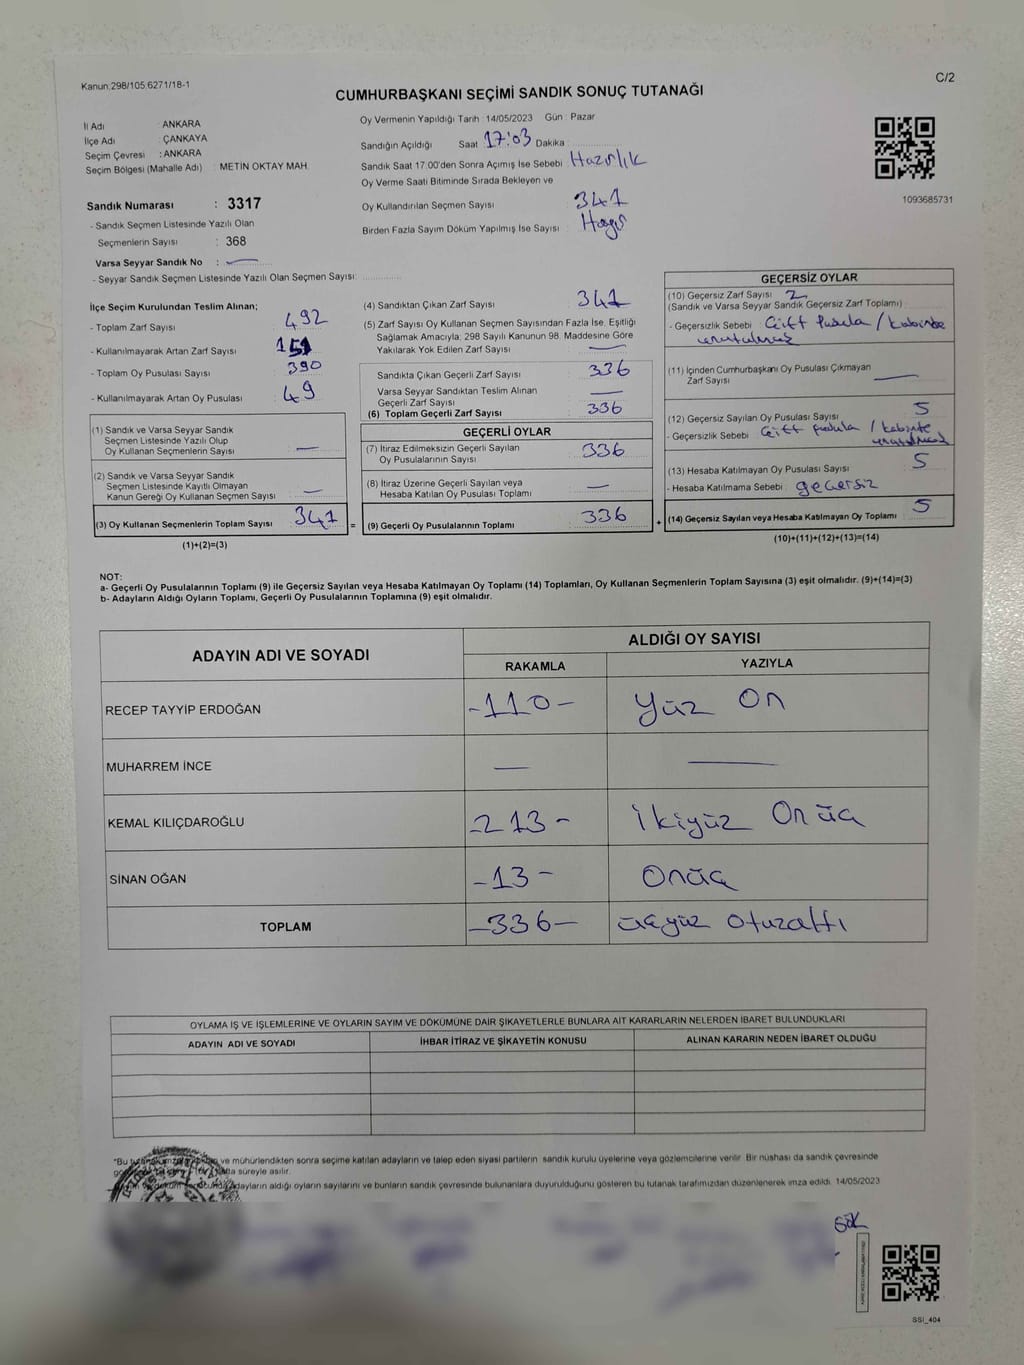 Kanun:298/105.6271/18-1
C/2
CUMHURBAŞKANI SEÇİMİ SANDIK SONUÇ TUTANAĞI
İl Adı : ANKARA
İlçe Adı : ÇANKAYA
Seçim Çevresi : ANKARA
Seçim Bölgesi (Mahalle Adı) : METİN OKTAY MAH.
Sandık Numarası : 3317
- Sandık Seçmen Listesinde Yazılı Olan
Seçmenlerin Sayısı : 368
Varsa Seyyar Sandık No : —
- Seyyar Sandık Seçmen Listesinde Yazılı Olan Seçmen Sayısı: ............
Oy Vermenin Yapıldığı Tarih : 14/05/2023 Gün : Pazar
Sandığın Açıldığı Saat 17:03 Dakika
Sandık Saat 17:00'den Sonra Açımış İse Sebebi : Hazırlık
Oy Verme Saati Bitiminde Sırada Bekleyen ve
Oy Kullandırılan Seçmen Sayısı : 341
Birden Fazla Sayım Döküm Yapılmış İse Sayısı : Hayır
1093685731
İlçe Seçim Kurulundan Teslim Alınan;
- Toplam Zarf Sayısı : 492
- Kullanılmayarak Artan Zarf Sayısı : 151
- Toplam Oy Pusulası Sayısı : 390
- Kullanılmayarak Artan Oy Pusulası : 49
(1) Sandık ve Varsa Seyyar Sandık
Seçmen Listesinde Yazılı Olup
Oy Kullanan Seçmenlerin Sayısı : —
(2) Sandık ve Varsa Seyyar Sandık
Seçmen Listesinde Kayıtlı Olmayan
Kanun Gereği Oy Kullanan Seçmen Sayısı : —
(3) Oy Kullanan Seçmenlerin Toplam Sayısı : 341 =
(1)+(2)=(3)
(4) Sandıktan Çıkan Zarf Sayısı : 341
(5) Zarf Sayısı Oy Kullanan Seçmen Sayısından Fazla İse, Eşitliği
Sağlamak Amacıyla; 298 Sayılı Kanunun 98. Maddesine Göre
Yakılarak Yok Edilen Zarf Sayısı : —
Sandıkta Çıkan Geçerli Zarf Sayısı : 336
Varsa Seyyar Sandıktan Teslim Alınan
Geçerli Zarf Sayısı : —
(6) Toplam Geçerli Zarf Sayısı : 336
GEÇERLİ OYLAR
(7) İtiraz Edilmeksizin Geçerli Sayılan
Oy Pusulalarının Sayısı : 336
(8) İtiraz Üzerine Geçerli Sayılan veya
Hesaba Katılan Oy Pusulası Toplamı : —
(9) Geçerli Oy Pusulalarının Toplamı : 336 +
GEÇERSİZ OYLAR
(10) Geçersiz Zarf Sayısı : 2
(Sandık ve Varsa Seyyar Sandık Geçersiz Zarf Toplamı)
- Geçersizlik Sebebi : Çift Pusula / kabinde
unutulmuş
(11) İçinden Cumhurbaşkanı Oy Pusulası Çıkmayan
Zarf Sayısı : —
(12) Geçersiz Sayılan Oy Pusulası Sayısı : 5
- Geçersizlik Sebebi : Çift pusula / kabinte
unutulmuş
(13) Hesaba Katılmayan Oy Pusulası Sayısı : 5
- Hesaba Katılmama Sebebi : geçersiz
(14) Geçersiz Sayılan veya Hesaba Katılmayan Oy Toplamı : 5
(10)+(11)+(12)+(13)=(14)
NOT:
a- Geçerli Oy Pusulalarının Toplamı (9) ile Geçersiz Sayılan veya Hesaba Katılmayan Oy Toplamı (14) Toplamları, Oy Kullanan Seçmenlerin Toplam Sayısına (3) eşit olmalıdır. (9)+(14)=(3)
b- Adayların Aldığı Oyların Toplamı, Geçerli Oy Pusulalarının Toplamına (9) eşit olmalıdır.
ADAYIN ADI VE SOYADI
ALDIĞI OY SAYISI
RAKAMLA YAZIYLA
RECEP TAYYİP ERDOĞAN -110- Yüz On
MUHARREM İNCE — —
KEMAL KILIÇDAROĞLU -213- İkiyüz Onüç
SİNAN OĞAN -13- Onüç
TOPLAM -336- üçyüz otuzaltı
OYLAMA İŞ VE İŞLEMLERİNE VE OYLARIN SAYIM VE DÖKÜMÜNE DAİR ŞİKAYETLERLE BUNLARA AİT KARARLARIN NELERDEN İBARET BULUNDUKLARI
ADAYIN ADI VE SOYADI İHBAR İTİRAZ VE ŞİKAYETİN KONUSU ALINAN KARARIN NEDEN İBARET OLDUĞU
"Bu ve mühürlendikten sonra seçime katılan adayların ve talep eden siyasi partilerin sandık kurulu üyelerine veya gözlemcilerine verilir. Bir nüshası da sandık çevresinde
süreyle asılır.
adayların aldığı oyların sayılarını ve bunların sandık çevresinde bulunanlara duyurulduğunu gösteren bu tutanak tarafımızdan düzenlenerek imza edildi. 14/05/2023
SSI_404